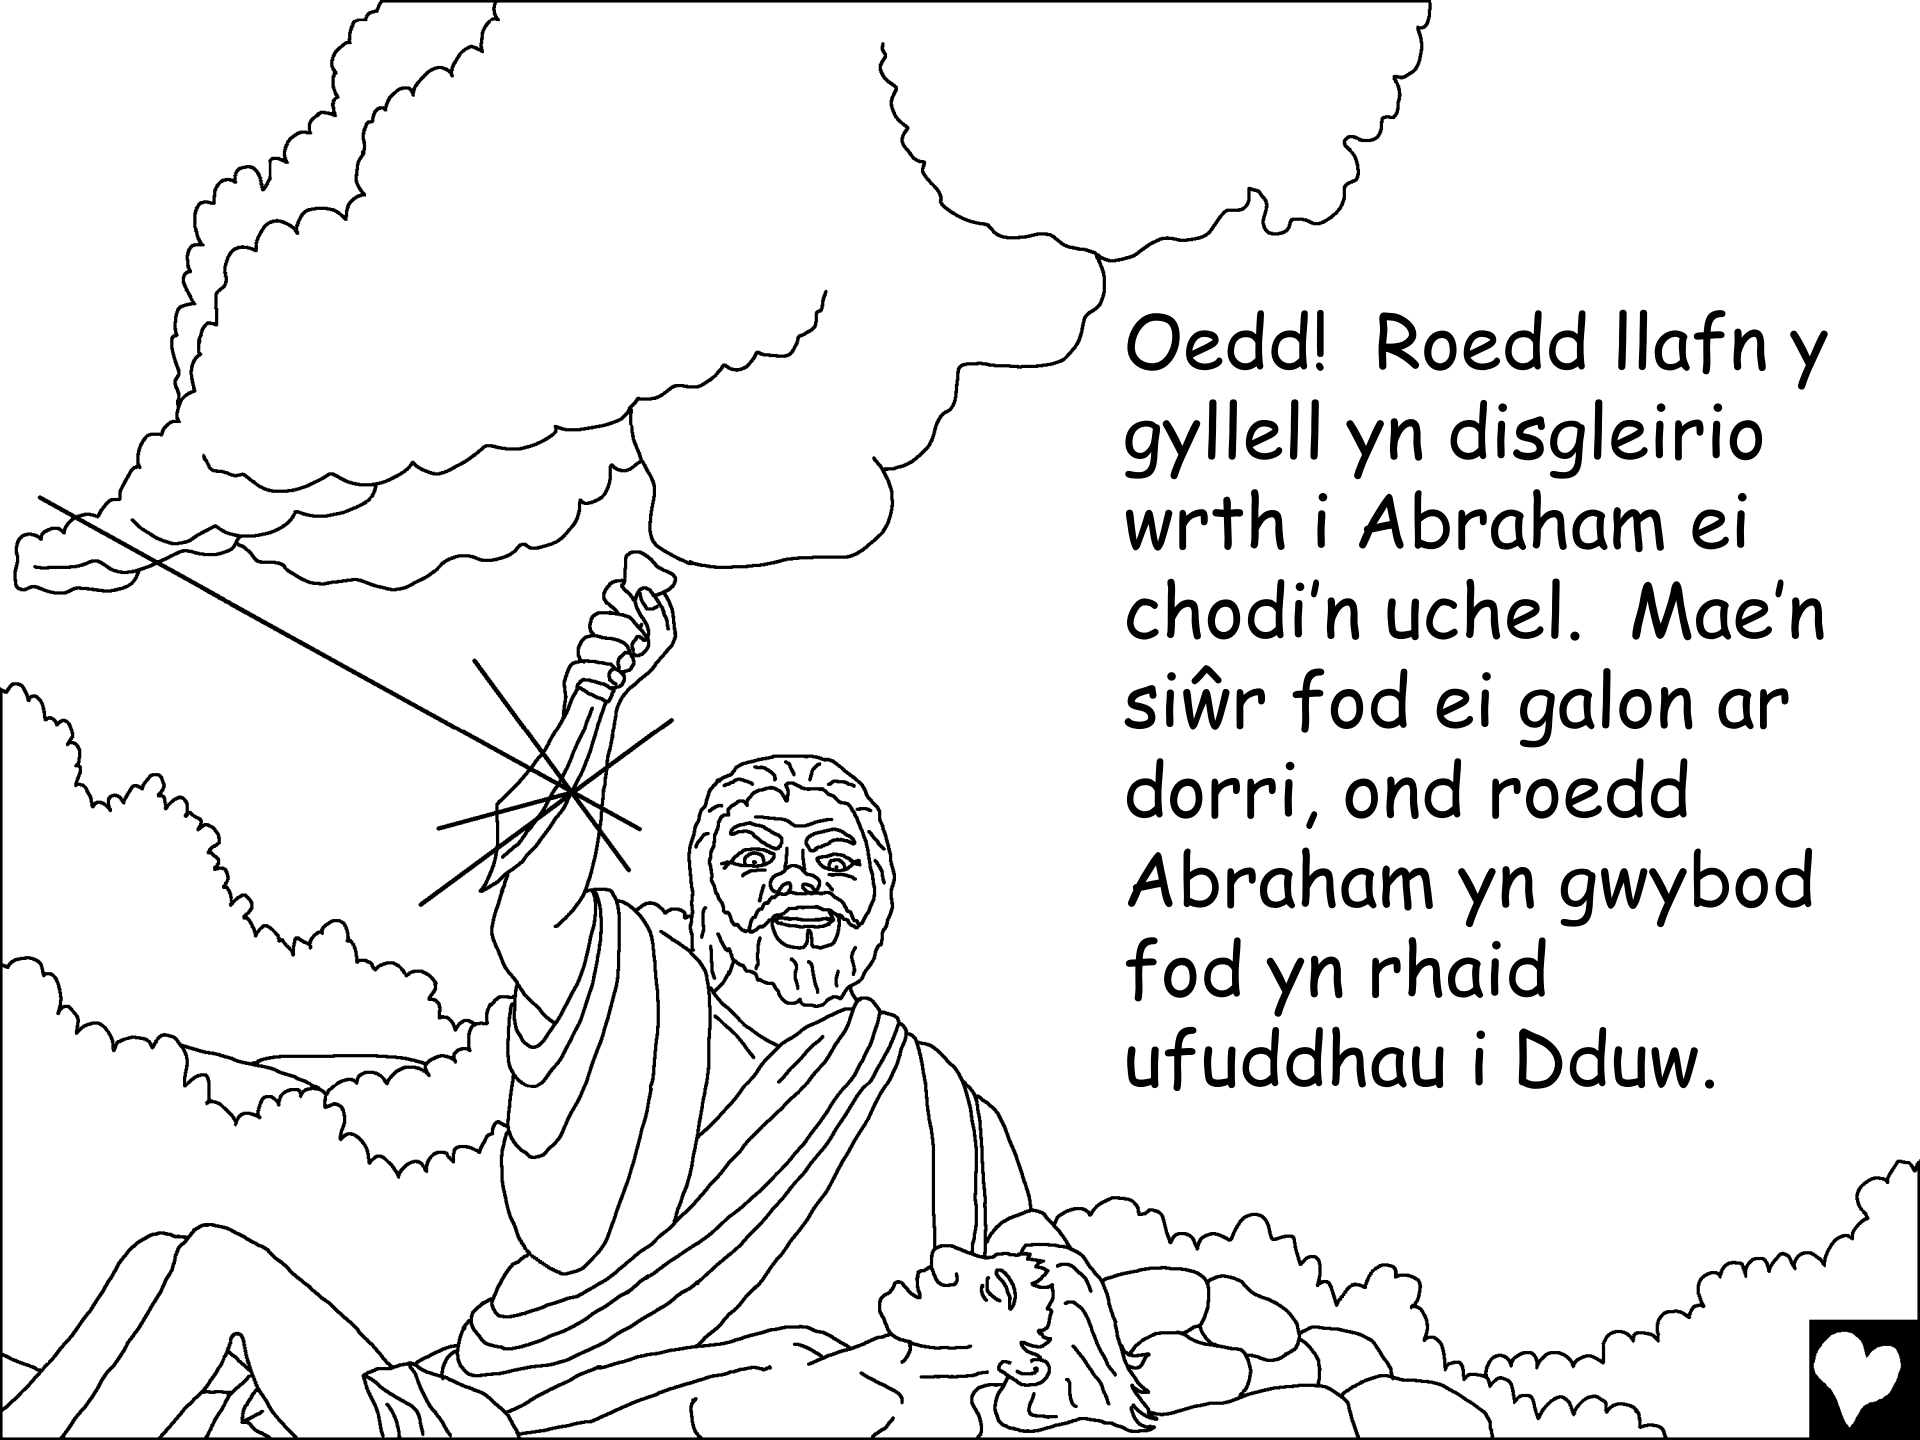 Oedd!  Roedd llafn y
gyllell yn disgleirio
wrth i Abraham ei
chodi’n uchel.  Mae’n
siŵr fod ei galon ar
dorri, ond roedd
Abraham yn gwybod
fod yn rhaid
ufuddhau i Dduw.